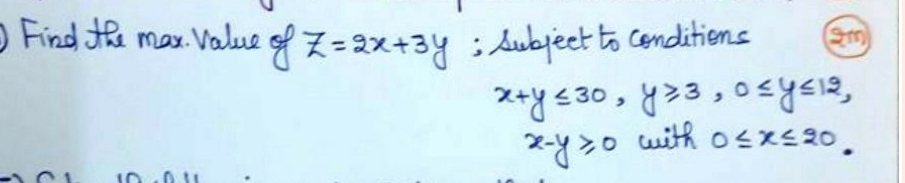 ) Find the max. Value of Z = 2x+3y ; Subject to Conditions (2m)
x+y ≤ 30, y ≥ 3, 0 ≤ y ≤ 12,
x-y ≥ 0 with 0 ≤ x ≤ 20.